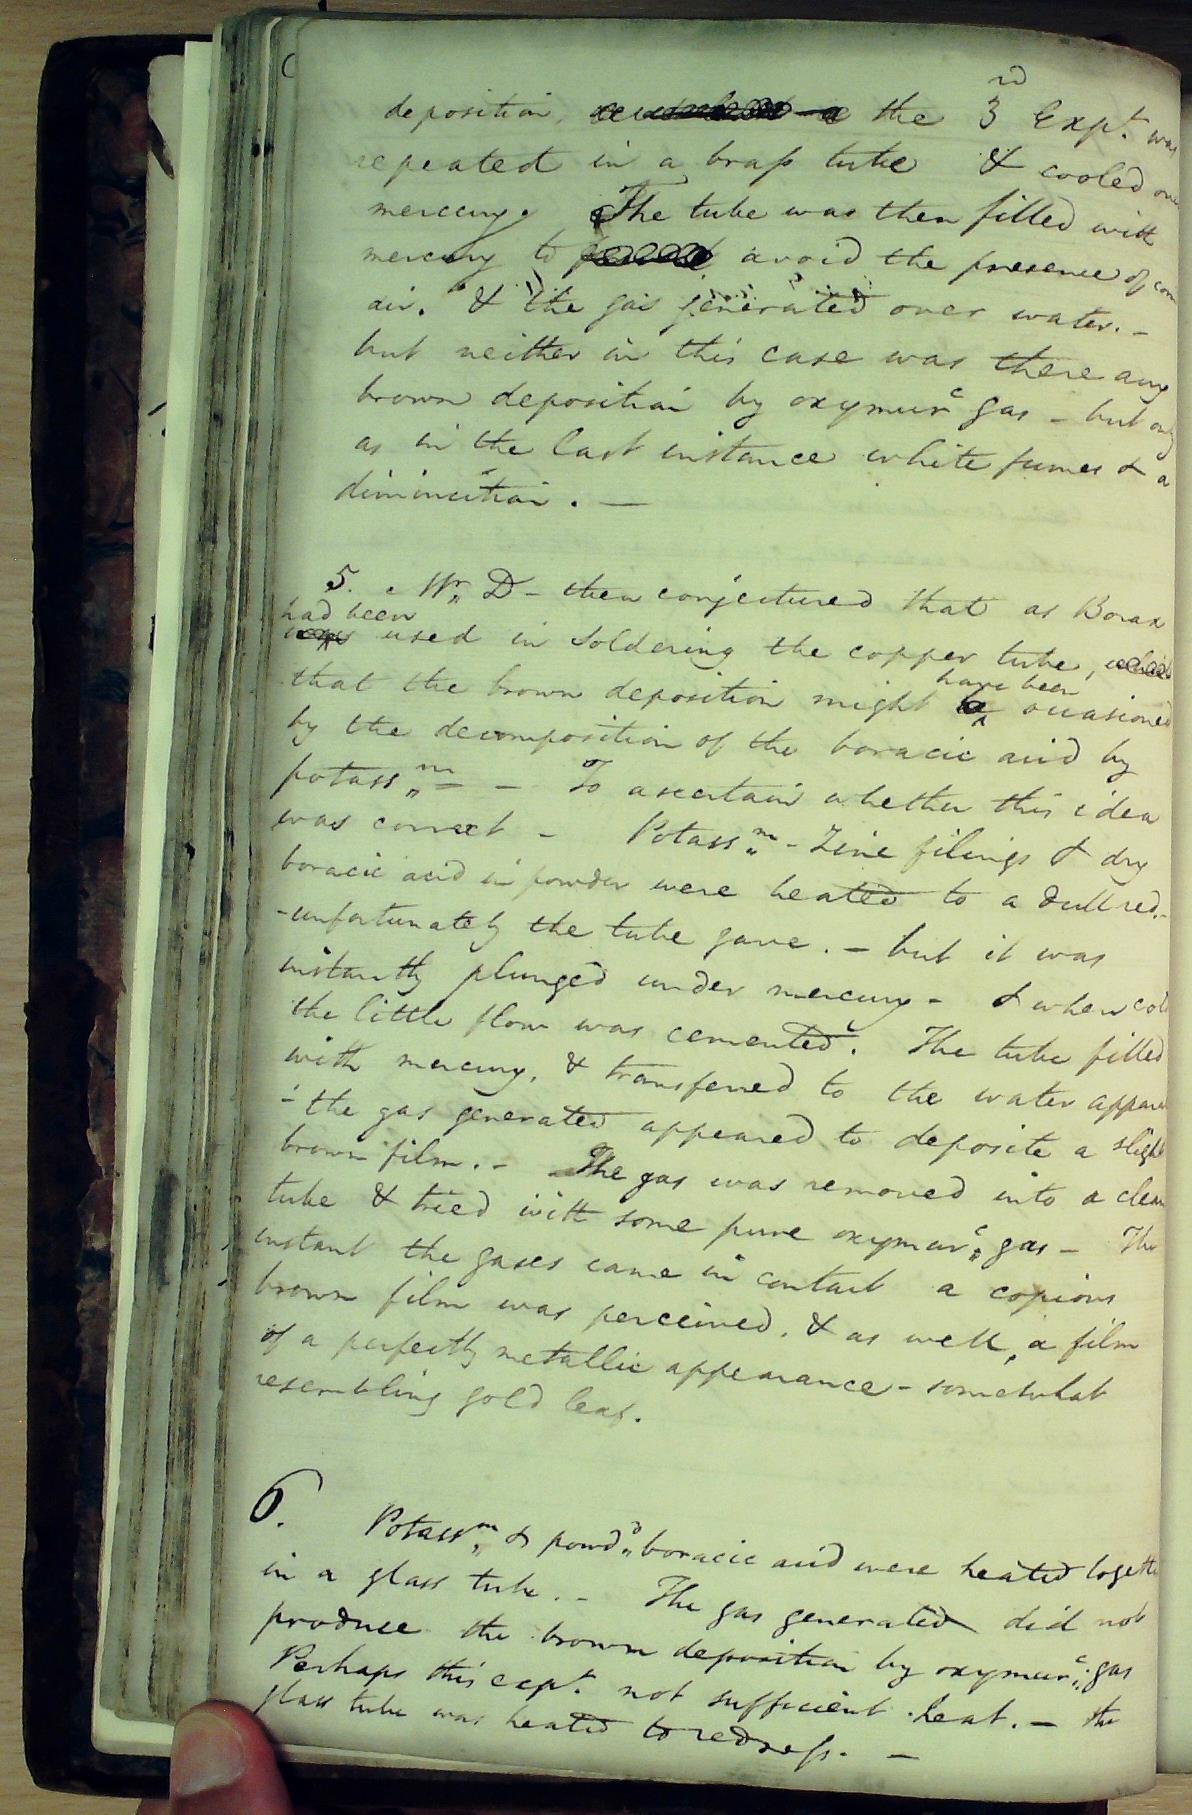 deposition, the 3rd Expt. was
repeated in a brass tube & cooled over
mercury. The tube was then filled with
mercury to avoid the presence of com
air. & the gas generated over water. -
but neither in this case was there any
brown deposition by oxymurc gas - but only
as in the last instance white fumes & a
diminution. -
5. Mr. D - then conjectured that as Borax
had been
was used in Soldering the copper tube,
have been
that the brown deposition might be occasioned
by the decomposition of the boracic acid by
potassm - - To ascertain whether this idea
was correct - Potassm - Zinc filings & dry
boracic acid in powder were heated to a dull red. -
- unfortunately the tube gave. - but it was
instantly plunged under mercury - & when cold
the little flow was cemented. The tube filled
with mercury, & transferred to the water appara
- the gas generated appeared to deposite a slight
brown film. - The gas was removed into a clean
tube & tried with some pure oxymurc gas - The
instant the gases came in contact a copious
brown film was perceived, & as well, a film
of a perfectly metallic appearance - somewhat
resembling gold leaf.
6. Potassm & powdd boracic acid were heated togethe
in a glass tube. - The gas generated did not
produce the brown deposition by oxymurc gas
Perhaps this expt. not sufficient heat. - the
glass tube was heated to redness. -